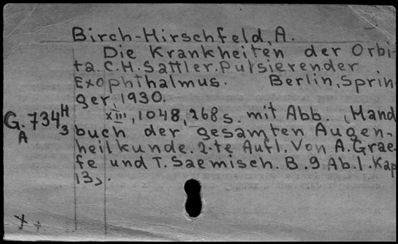 Birch-Hirschfeld, A.
Die Krankheiten der Orbi-
ta. C.H. Sattler. Pulsierender
Exophthalmus. Berlin, Sprin-
ger, 1930.
XIII, 1048, 268 s. mit Abb. (Hand
buch der gesamten Augen-
heilkunde. 2-te Aufl. Von A. Grae-
fe und T. Saemisch. B. 9 Ab. 1. Kap
13).
G. 734 H/3
A